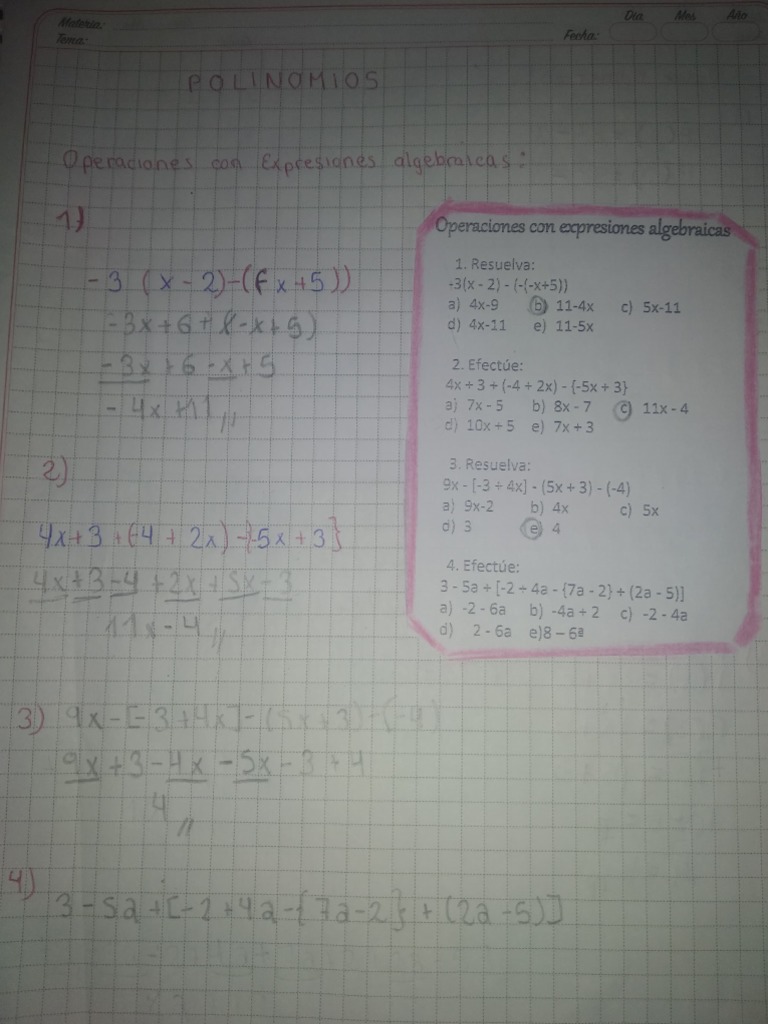 Materia:
Tema:
Fecha:
Día Mes Año
POLINOMIOS
Operaciones con Expresiones algebraicas:
1)
-3 (x-2)-(-(-x+5))
-3x+6+(-x+5)
-3x+6-x+5
-4x+11,,
2)
4x+3+(-4+2x)-{-5x+3}
4x+3-4+2x+5x-3
11x-4,,
3) 9x-[-3+4x]-(5x+3)-(-4)
9x+3-4x-5x-3+4
4,,
4)
3-5a+[-2+4a-{7a-2}+(2a-5)]
Operaciones con expresiones algebraicas
1. Resuelva:
-3(x - 2) - (-(-x+5))
a) 4x-9 b) 11-4x c) 5x-11
d) 4x-11 e) 11-5x
2. Efectúe:
4x + 3 + (-4 + 2x) - {-5x + 3}
a) 7x - 5 b) 8x - 7 c) 11x - 4
d) 10x + 5 e) 7x + 3
3. Resuelva:
9x - [-3 + 4x] - (5x + 3) - (-4)
a) 9x-2 b) 4x c) 5x
d) 3 e) 4
4. Efectúe:
3 - 5a + [-2 + 4a - {7a - 2} + (2a - 5)]
a) -2 - 6a b) -4a + 2 c) -2 - 4a
d) 2 - 6a e)8 – 6ª